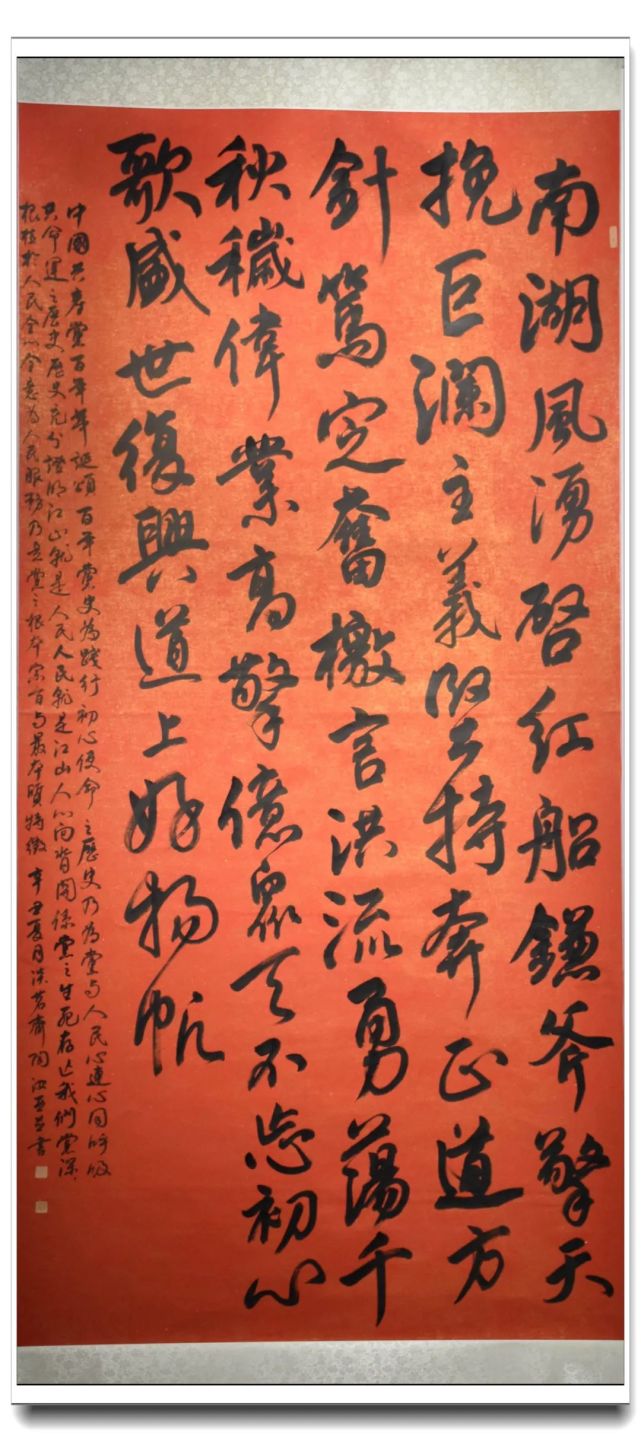 南湖風湧啓紅船鐮斧擎天
挽巨瀾主義堅持奔正道方
針篤定奮檄言洪流勇蕩千
秋穢偉業高擎億眾天不忘初心
歌盛世復興道上好揚帆
中國共產黨百年華誕頌百年黨史為踐行初心使命之歷史乃為黨與人民心連心同呼吸
共命運之歷史歷史充分證明江山就是人民人民就是江山人心向背關係黨之生死存亡我們黨深
根植於人民全心全意為人民服務乃是黨之根本宗旨與最本質特徵辛丑夏月淡茗齋陶汝
書